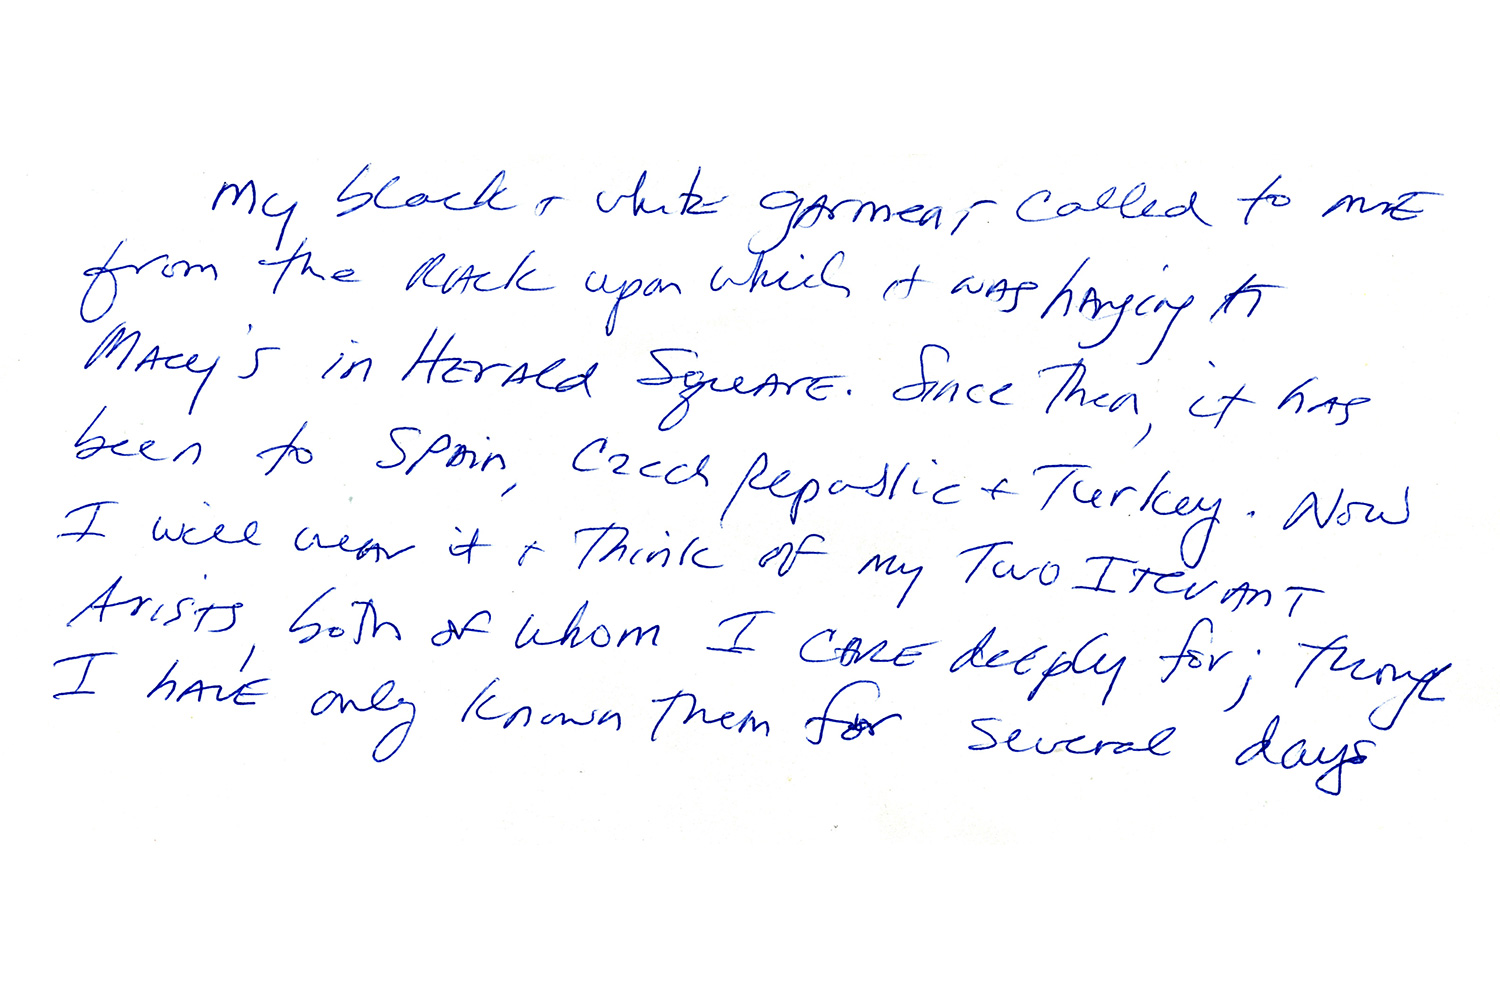 My black + white garment called to me
from the rack upon which it was hanging at
Macy's in Herald Square. Since then, it has
been to Spain, Czech Republic + Turkey. Now
I will wear it + think of my two Itenrant
Arists, both of whom I care deeply for; though
I have only known them for several days